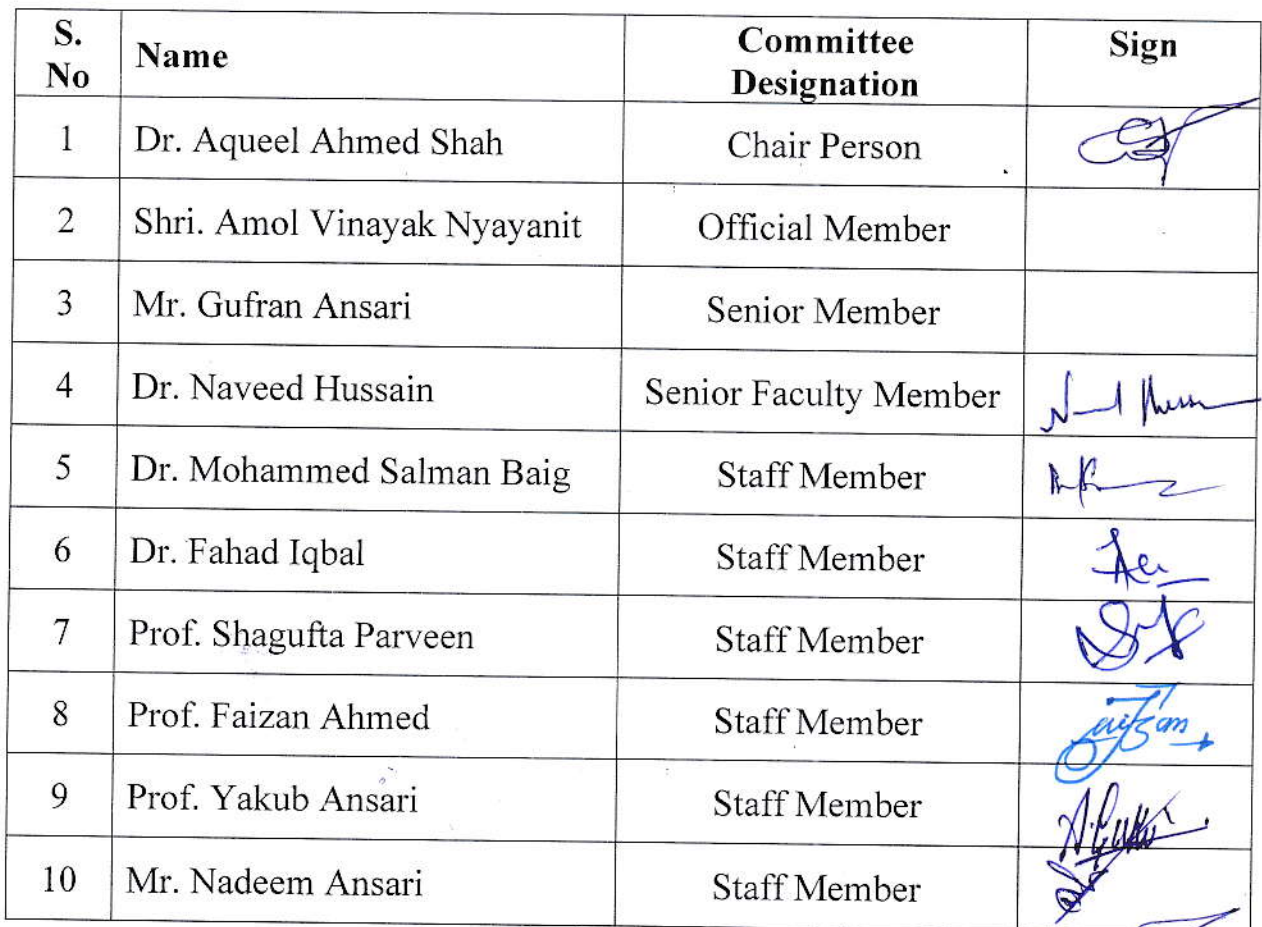 S. No Name Committee Designation Sign
1 Dr. Aqueel Ahmed Shah Chair Person
2 Shri. Amol Vinayak Nyayanit Official Member
3 Mr. Gufran Ansari Senior Member
4 Dr. Naveed Hussain Senior Faculty Member
5 Dr. Mohammed Salman Baig Staff Member
6 Dr. Fahad Iqbal Staff Member
7 Prof. Shagufta Parveen Staff Member
8 Prof. Faizan Ahmed Staff Member
9 Prof. Yakub Ansari Staff Member
10 Mr. Nadeem Ansari Staff Member